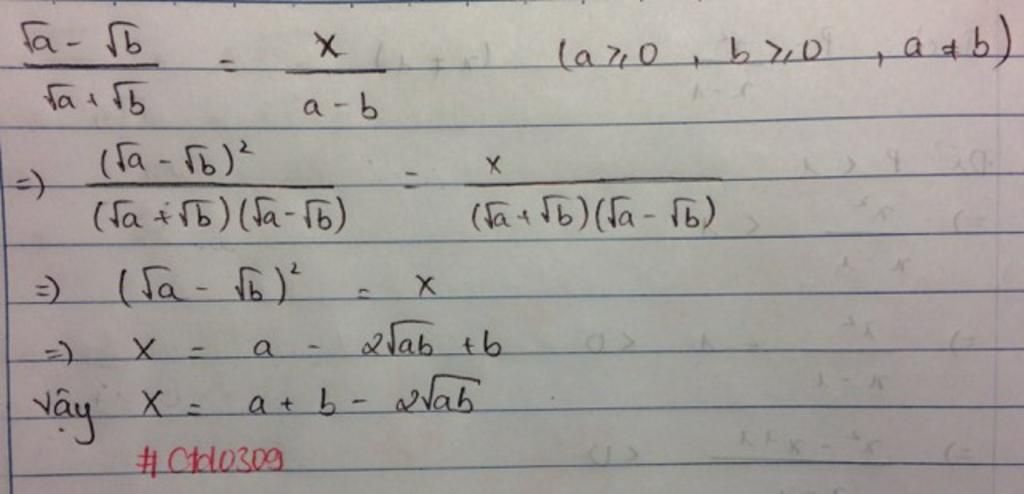 √a - √b / √a + √b = x / a - b (a ≥ 0, b ≥ 0, a ≠ b)
=) (√a - √b)² / (√a + √b)(√a - √b) = x / (√a + √b)(√a - √b)
=) (√a - √b)² = x
=) x = a - 2√ab + b
Vậy x = a + b - 2√ab